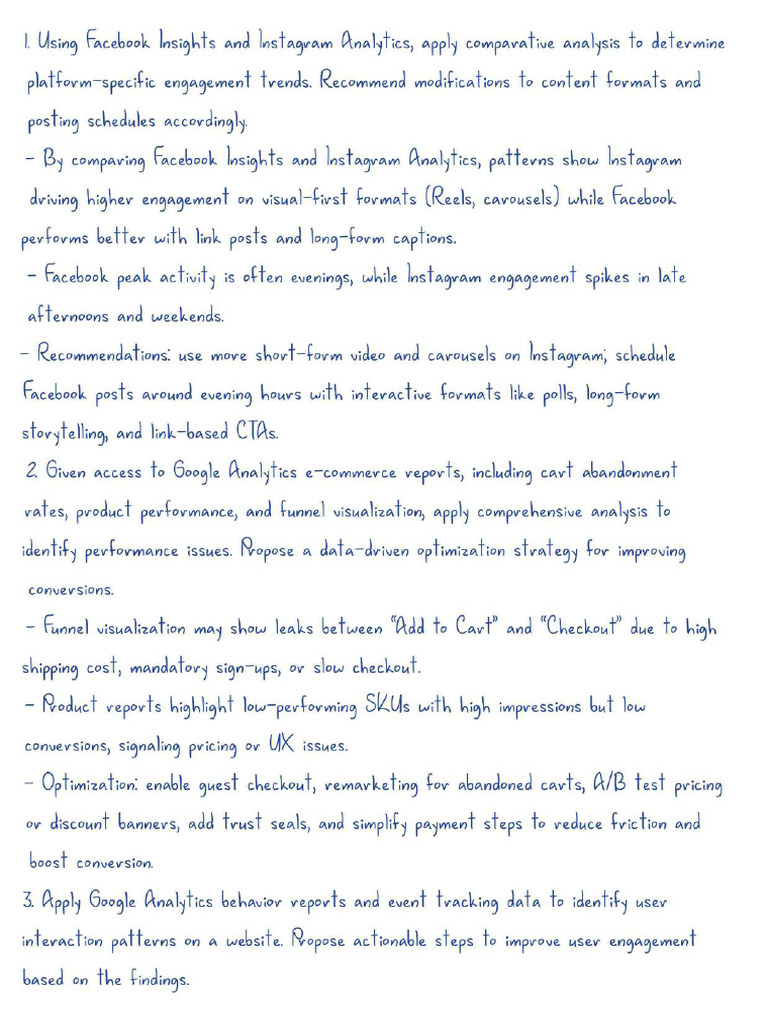 1. Using Facebook Insights and Instagram Analytics, apply comparative analysis to determine
platform-specific engagement trends. Recommend modifications to content formats and
posting schedules accordingly.
- By comparing Facebook Insights and Instagram Analytics, patterns show Instagram
driving higher engagement on visual-first formats (Reels, carousels) while Facebook
performs better with link posts and long-form captions.
- Facebook peak activity is often evenings, while Instagram engagement spikes in late
afternoons and weekends.
- Recommendations: use more short-form video and carousels on Instagram; schedule
Facebook posts around evening hours with interactive formats like polls, long-form
storytelling, and link-based CTAs.
2. Given access to Google Analytics e-commerce reports, including cart abandonment
rates, product performance, and funnel visualization, apply comprehensive analysis to
identify performance issues. Propose a data-driven optimization strategy for improving
conversions.
- Funnel visualization may show leaks between "Add to Cart" and "Checkout" due to high
shipping cost, mandatory sign-ups, or slow checkout.
- Product reports highlight low-performing SKUs with high impressions but low
conversions, signaling pricing or UX issues.
- Optimization: enable guest checkout, remarketing for abandoned carts, A/B test pricing
or discount banners, add trust seals, and simplify payment steps to reduce friction and
boost conversion.
3. Apply Google Analytics behavior reports and event tracking data to identify user
interaction patterns on a website. Propose actionable steps to improve user engagement
based on the findings.